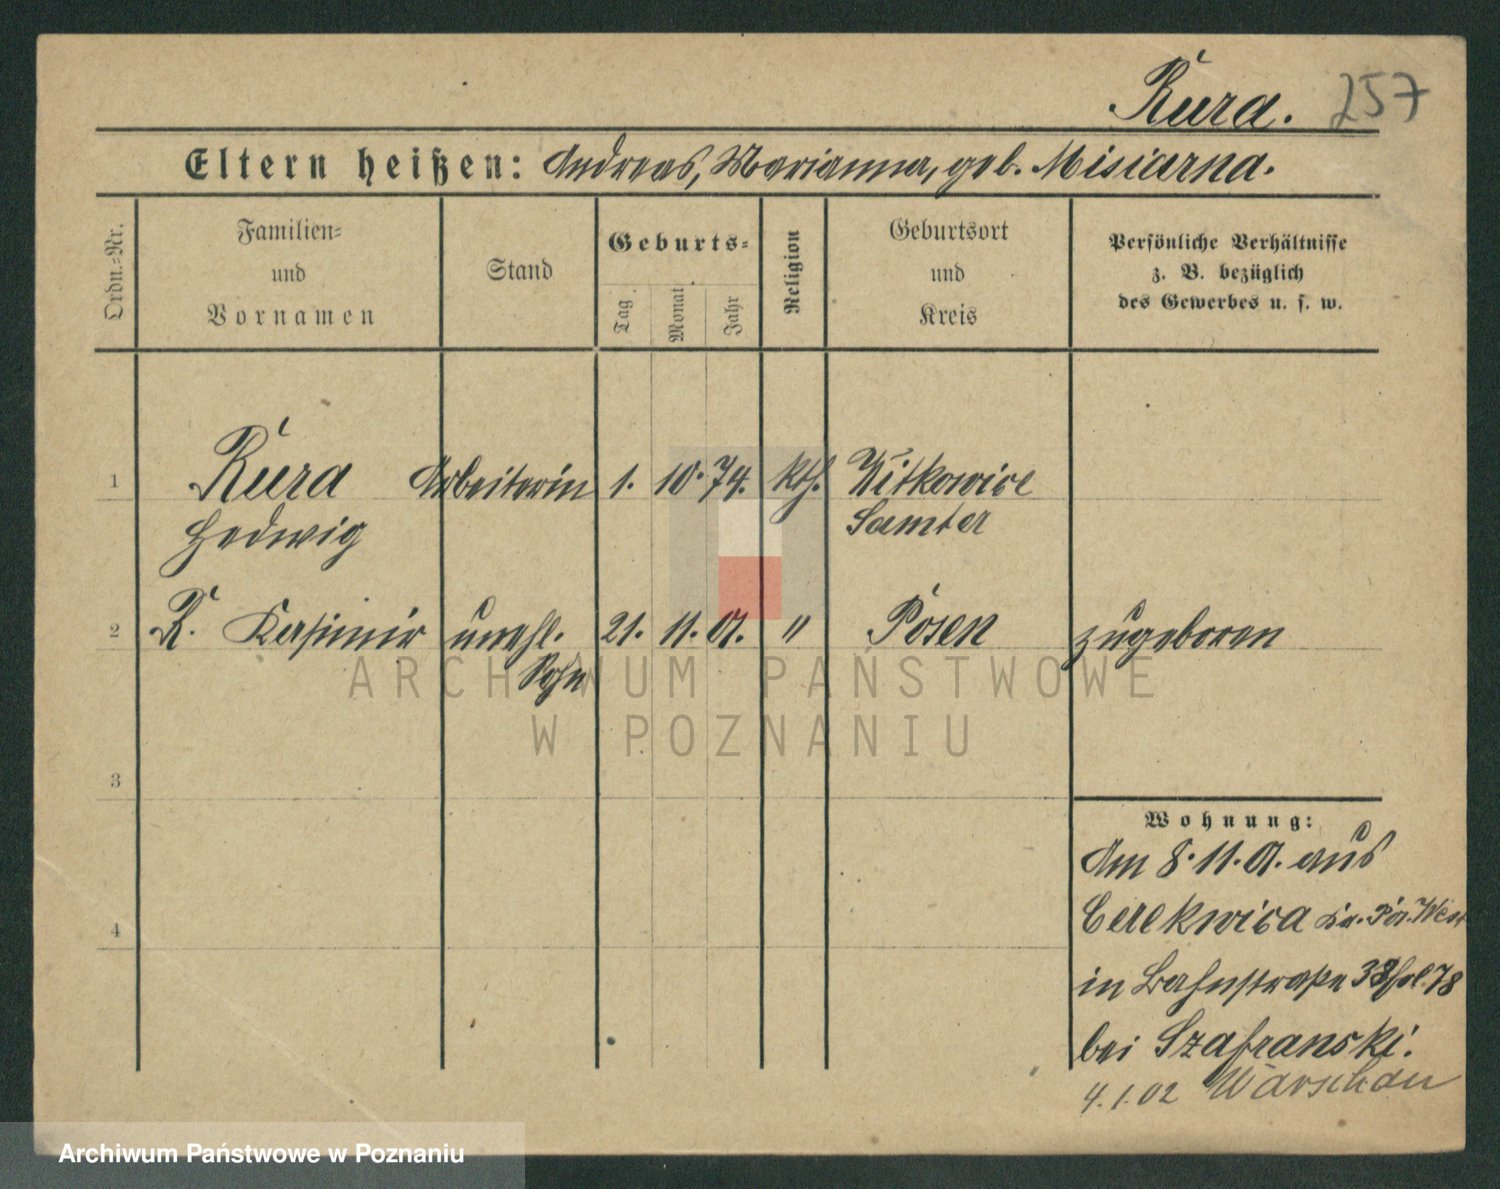 Kura. 257
Eltern heißen: Andreas, Marianna, geb. Misiarna.
Ordn.-Nr.
Familien-
und
Vornamen
Stand
Geburts-
Tag
Monat
Jahr
Religion
Geburtsort
und
Kreis
Persönliche Verhältnisse
z. B. bezüglich
des Gewerbes u. s. w.
1 Kura Arbeiterin 1. 10. 74. kth. Witkowice
Hedwig Samter
2 K. Kasimir unehl. 21. 11. 01. " Posen zugeboren
Sohn
ARCHIWUM PAŃSTWOWE
W POZNANIU
3
Wohnung:
Am 8. 11. 01. aus
Cerekwica Kr. Pos. West
4
in Bahnstraße 38 fol. 78
bei Szafranski.
4.1.02 Warschau
Archiwum Państwowe w Poznaniu